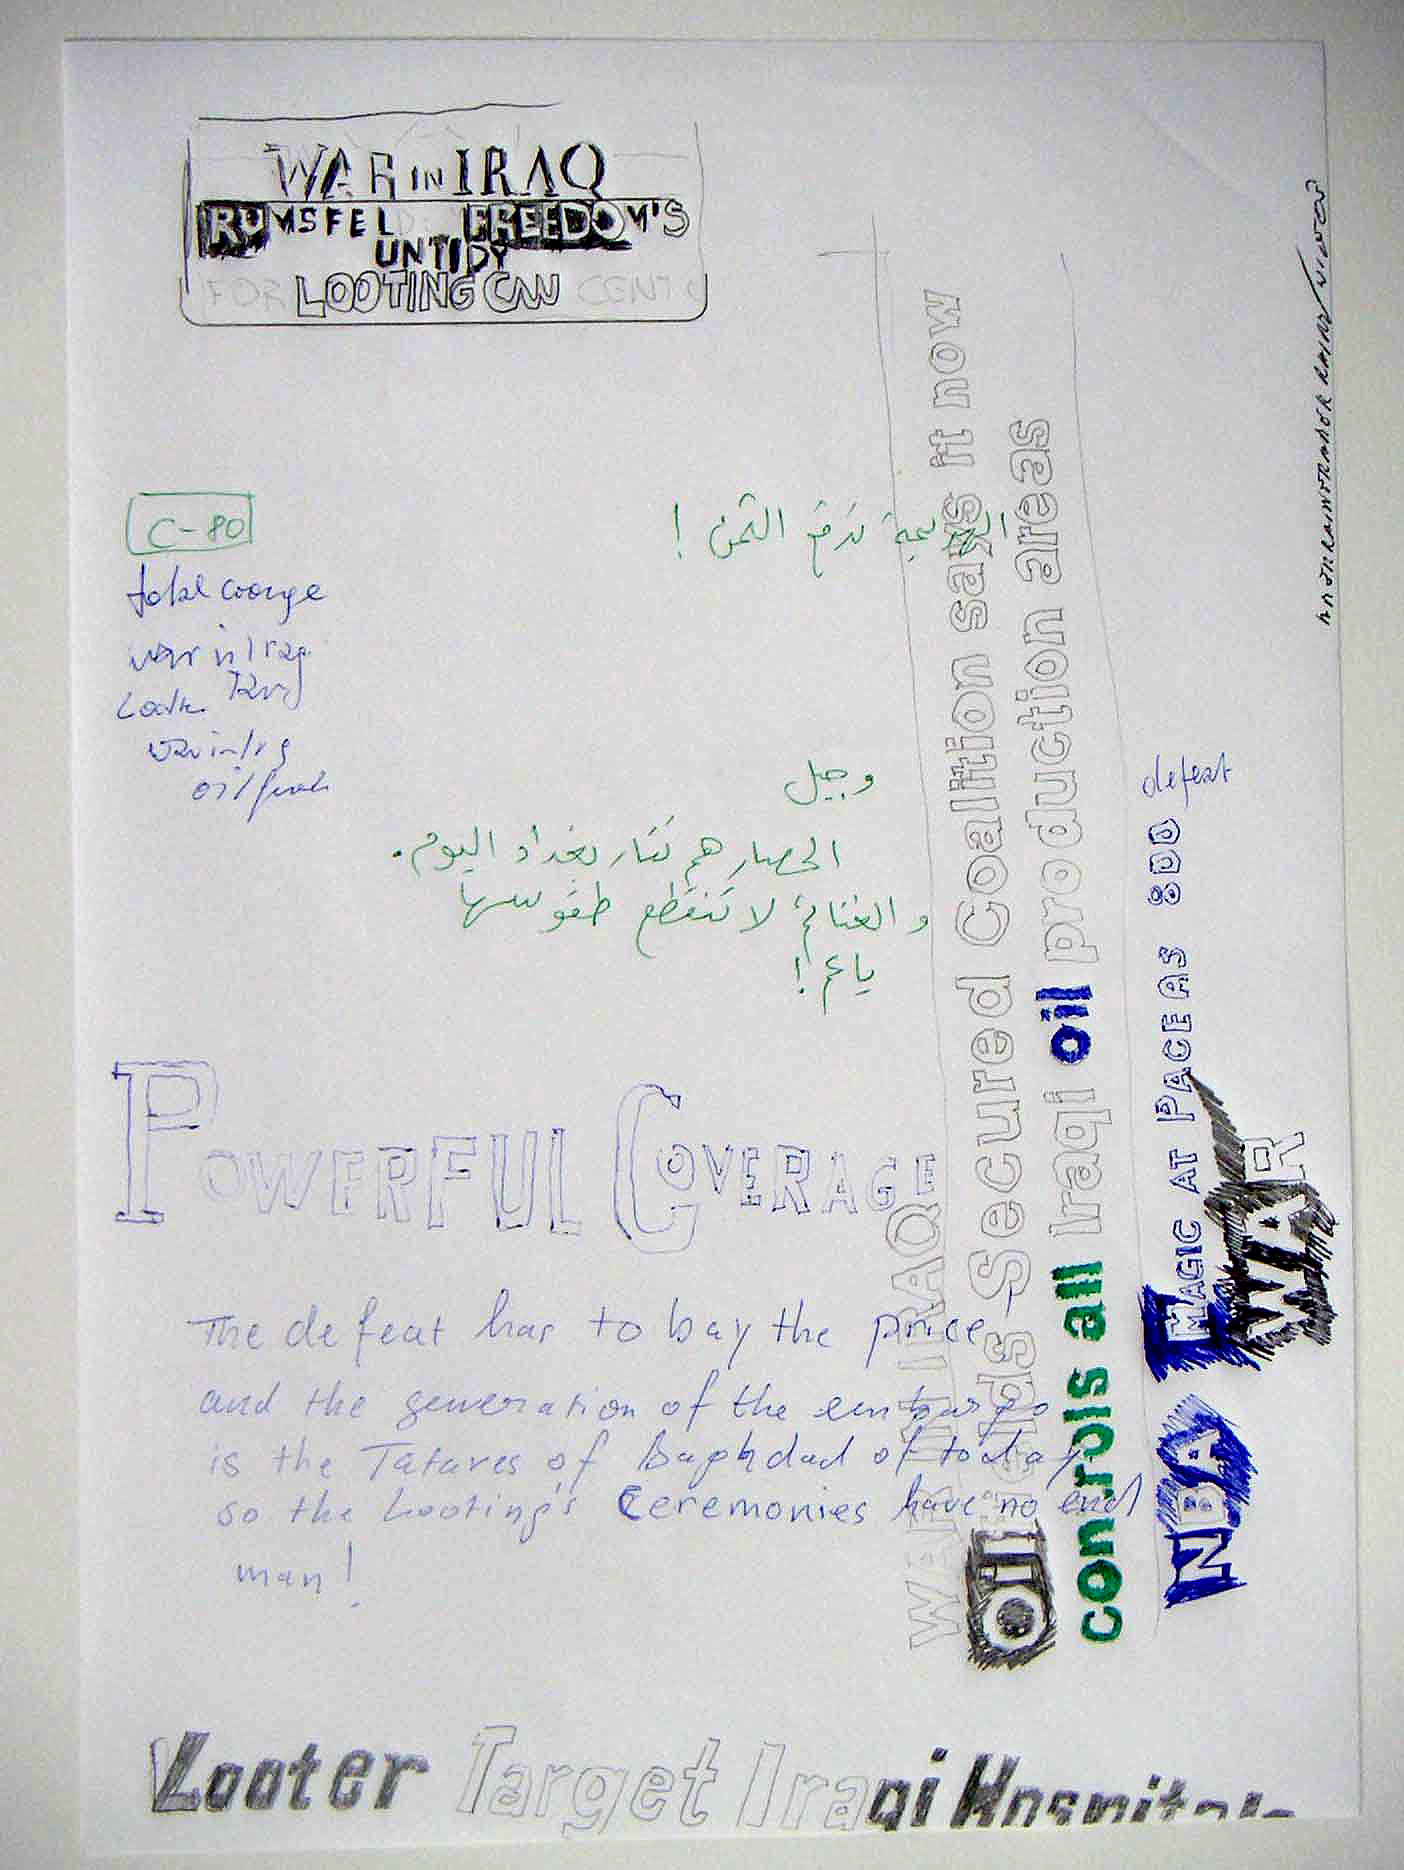 WAR IN IRAQ
RUMSFELD FREEDOM'S
UNTIDY
FOR LOOTING CNN CENT
C-80
war in Iraq
الهزيمة تدفع الثمن !
وجيل
الحصار هم تتار بغداد اليوم.
والغنائم لا تنقطع طقوسها
يا عم !
POWERFUL COVERAGE
The defeat has to bay the price
and the generation of the embargo
is the Tatares of Baghdad of today
so the Looting's Ceremonies have no end
man !
WAR IN IRAQ
Oil Fields Secured Coalition says it now
controls all Iraqi oil production areas
NBA MAGIC AT PACEAS 8DD
defeat
WAR
Looter Target Iraqi Hospitals